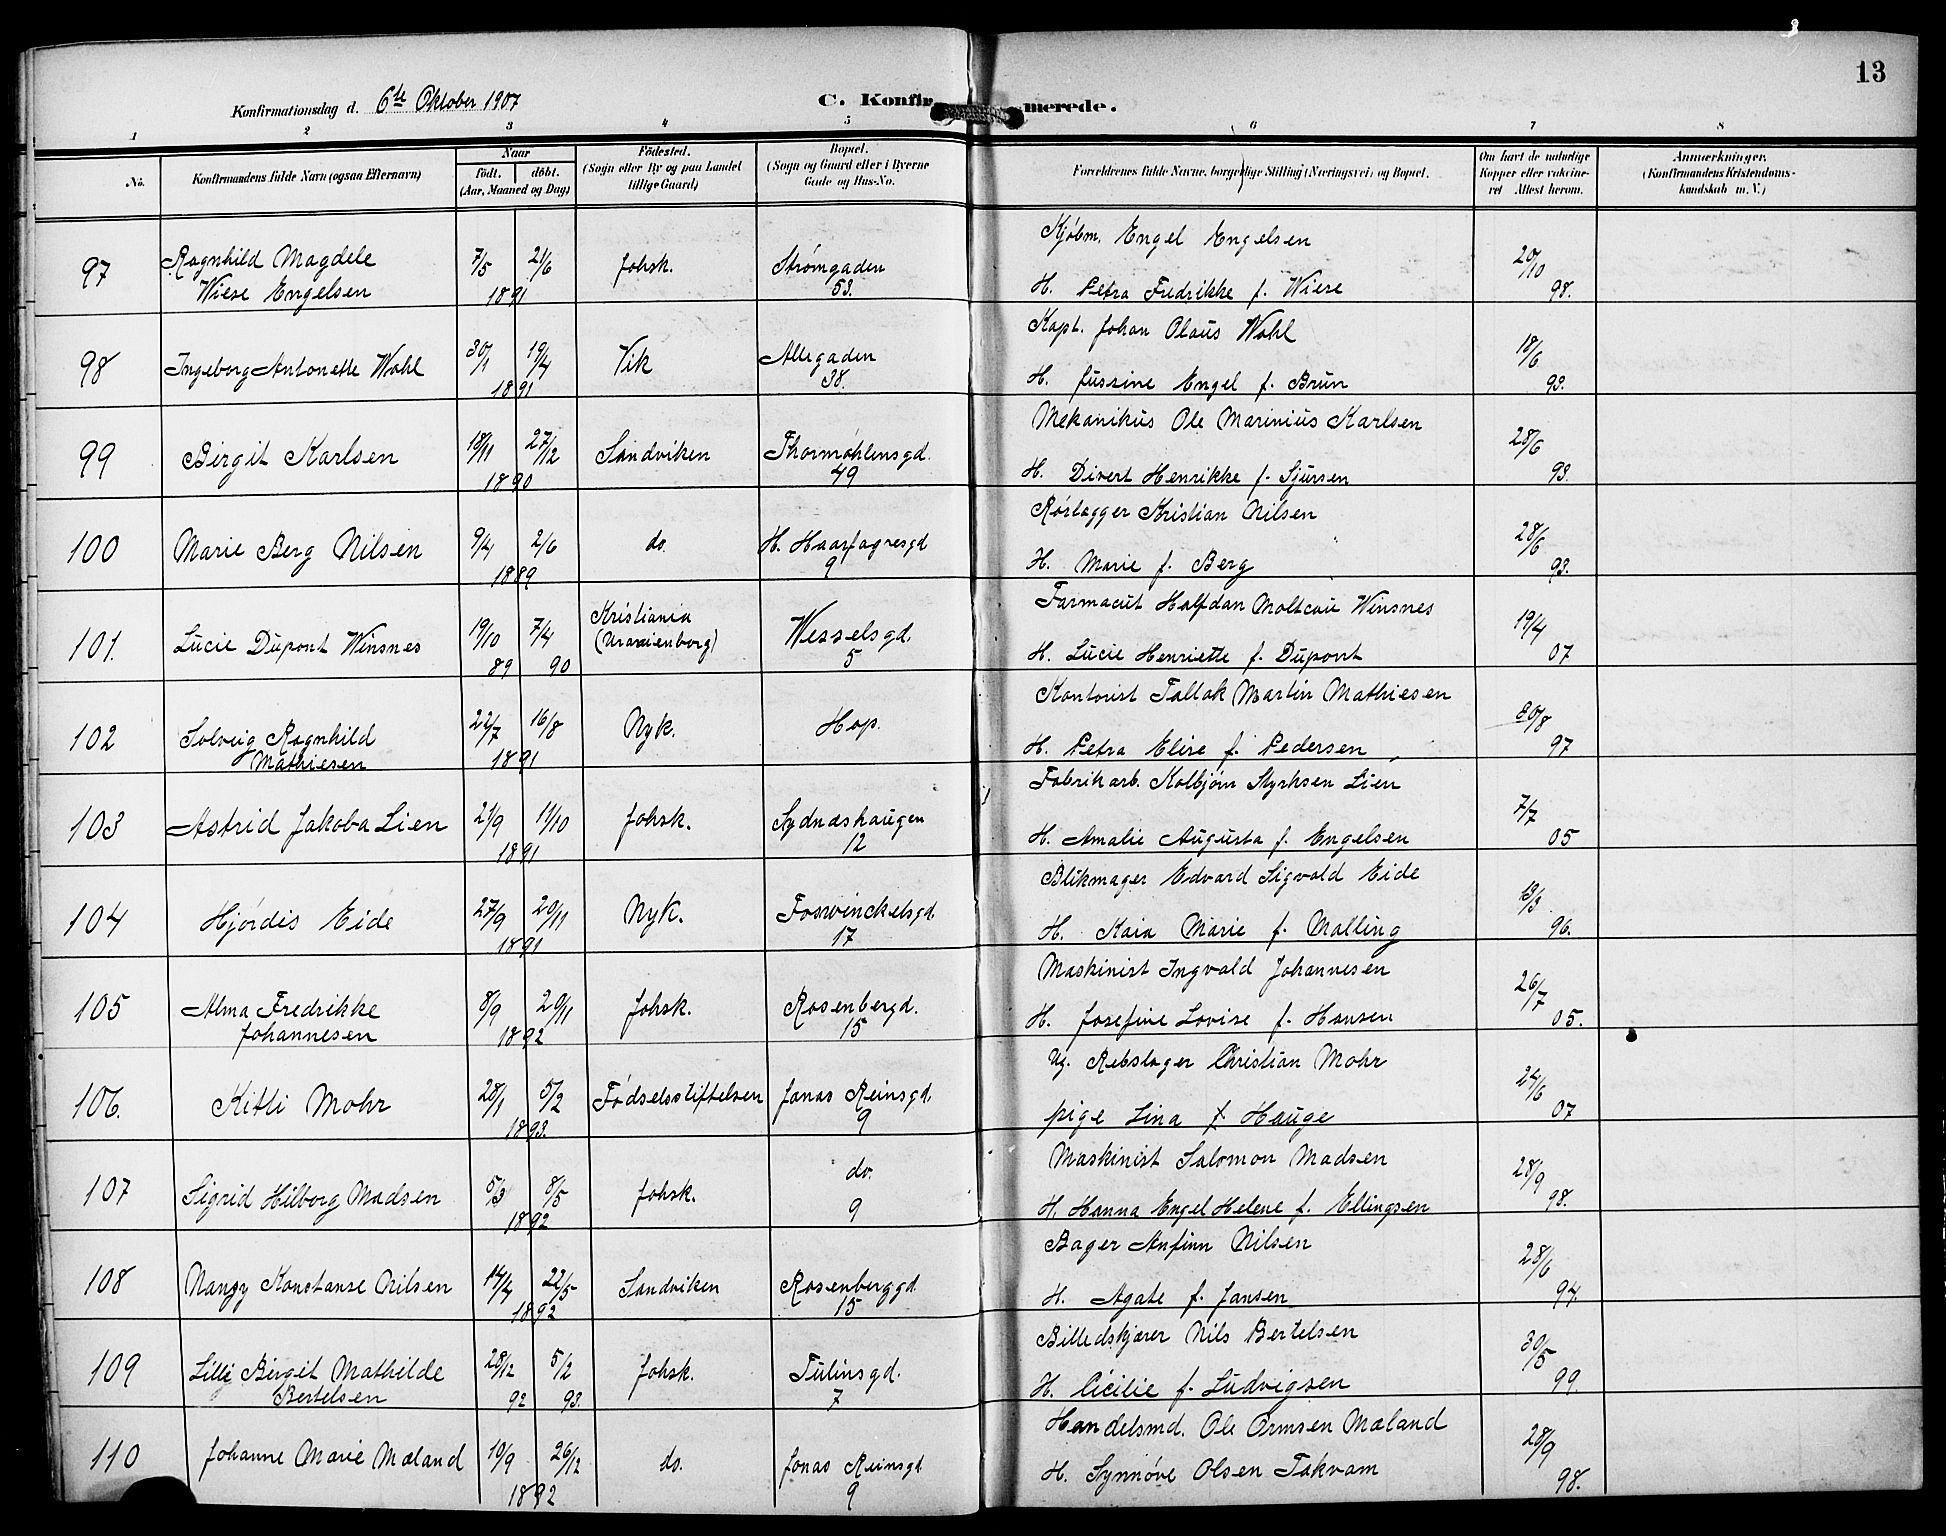 13
Konfirmationsdag d. 6te Oktober 1907
C. Konfirmerede.
1 2 3 4 5 6 7 8
No.
Konfirmandens fulde Navn (ogsaa Efternavn)
Naar
födt. döbt.
(Aar, Maaned og Dag)
Födested.
(Sogn eller By og paa Landet
tillige Gaard)
Bopæl.
(Sogn og Gaard eller i Byerne
Gade og Hus-No.
Forældrenes fulde Navne, borgerlige Stilling (Næringsvei) og Bopæl.
Om havt de naturlige
Kopper eller vakcineret
Attest herom.
Anmærkninger.
(Konfirmandens Kristendomskundskab
m. V.)
97 Ragnhild Magdele 7/5 21/6 Johsk. Strømgaden Kjøbm. Engel Engelsen 20/10
Wiese Engelsen 1891 53. H. Petra Fredrikke f. Wiese 98.
98 Ingeborg Antonette Wahl 30/1 19/4 Vik Allegaden Kapt. Johan Olaus Wahl 18/6
1891 38. H. Jussine Engel f. Brun 93.
99 Birgit Karlsen 18/11 27/12 Sandviken Thormøhlensgd. Mekanikus Ole Marinius Karlsen 28/6
1890 49 H. Divert Henrikke f. Sjursen 93.
100 Marie Berg Nilsen 9/4 2/6 do. H. Haarfagresgd Rørlægger Kristian Nilsen 28/6
1889 9 H. Marie f. Berg 93.
101. Lucie Dupont Winsnes 19/10 7/4 Kristiania (Uranienborg) Wesselsgd. Farmacut Halfdan Winsnes 19/4
89 90 5 H. Lucie Henriette f. Dupont 07
102 Solveig Ragnhild 22/7 16/8 Nyk. Hop. Kontorist Tallak Martin Mathiesen 30/8
Mathiesen 1891 H. Petra Elise f. Pedersen 97
103 Astrid Jakoba Lien 21/9 11/10 Johsk. Sydnæshaugen Fabrikarb. Kolbjørn Styrksen Lien 7/7
1891 12 H. Amalie Augusta f. Engelsen 05
104 Hjørdis Eide 27/9 29/11 Nyk. Fosswinckelsgd. Blikmager Edvard Sigvald Eide 13/3
1891 17 H. Kaia Marie f. Malling 96.
105 Alma Fredrikke 8/9 20/11 Johsk. Rosenbergd. Maskinist Ingvald Johannesen 26/7
Johannesen 1892 15 H. Josefine Lovise f. Hansen 05.
106. Kitti Mohr 28/1 5/2 Fødselsstiftelsen Jonas Reinsgd. Ug. Rebslager Christian Mohr 24/6
1893. 9 pige Lina f. Hauge 07
107 Sigrid Hilborg Madsen 5/3 8/5 Johsk. do. Maskinist Salomon Madsen 28/9
1892 9 H. Hanna Engel Helene f. Ellingsen 98.
108 Nangy Konstanse Nilsen 14/4 22/5 Sandviken Rosenberggd. Bager Anfinn Nilsen 28/6
1892 15 H. Agate f. Jansen 94.
109 Lilly Birgit Mathilde 28/12 5/2 Johsk. Tulinsgd. Billedskjærer Nils Bertelsen 30/5
Bertelsen 92 93. 7 H. Cicilie f. Ludvigsen 99.
110 Johanne Marie Mæland 10/9 26/12 do. Jonas Reinsgd. Handelsmd. Ole Ormsen Mæland 28/9
1892 9 H. Synnøve Olsen Takvam 98.